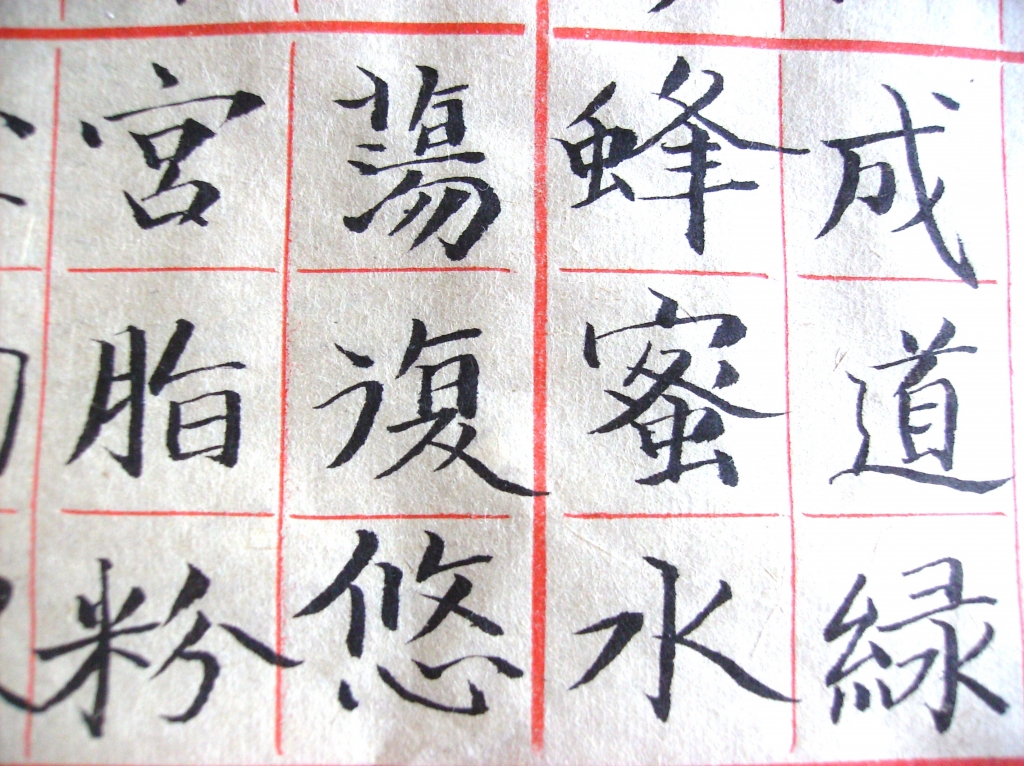 成道緑
蜂蜜水
蕩復悠
宮脂粉